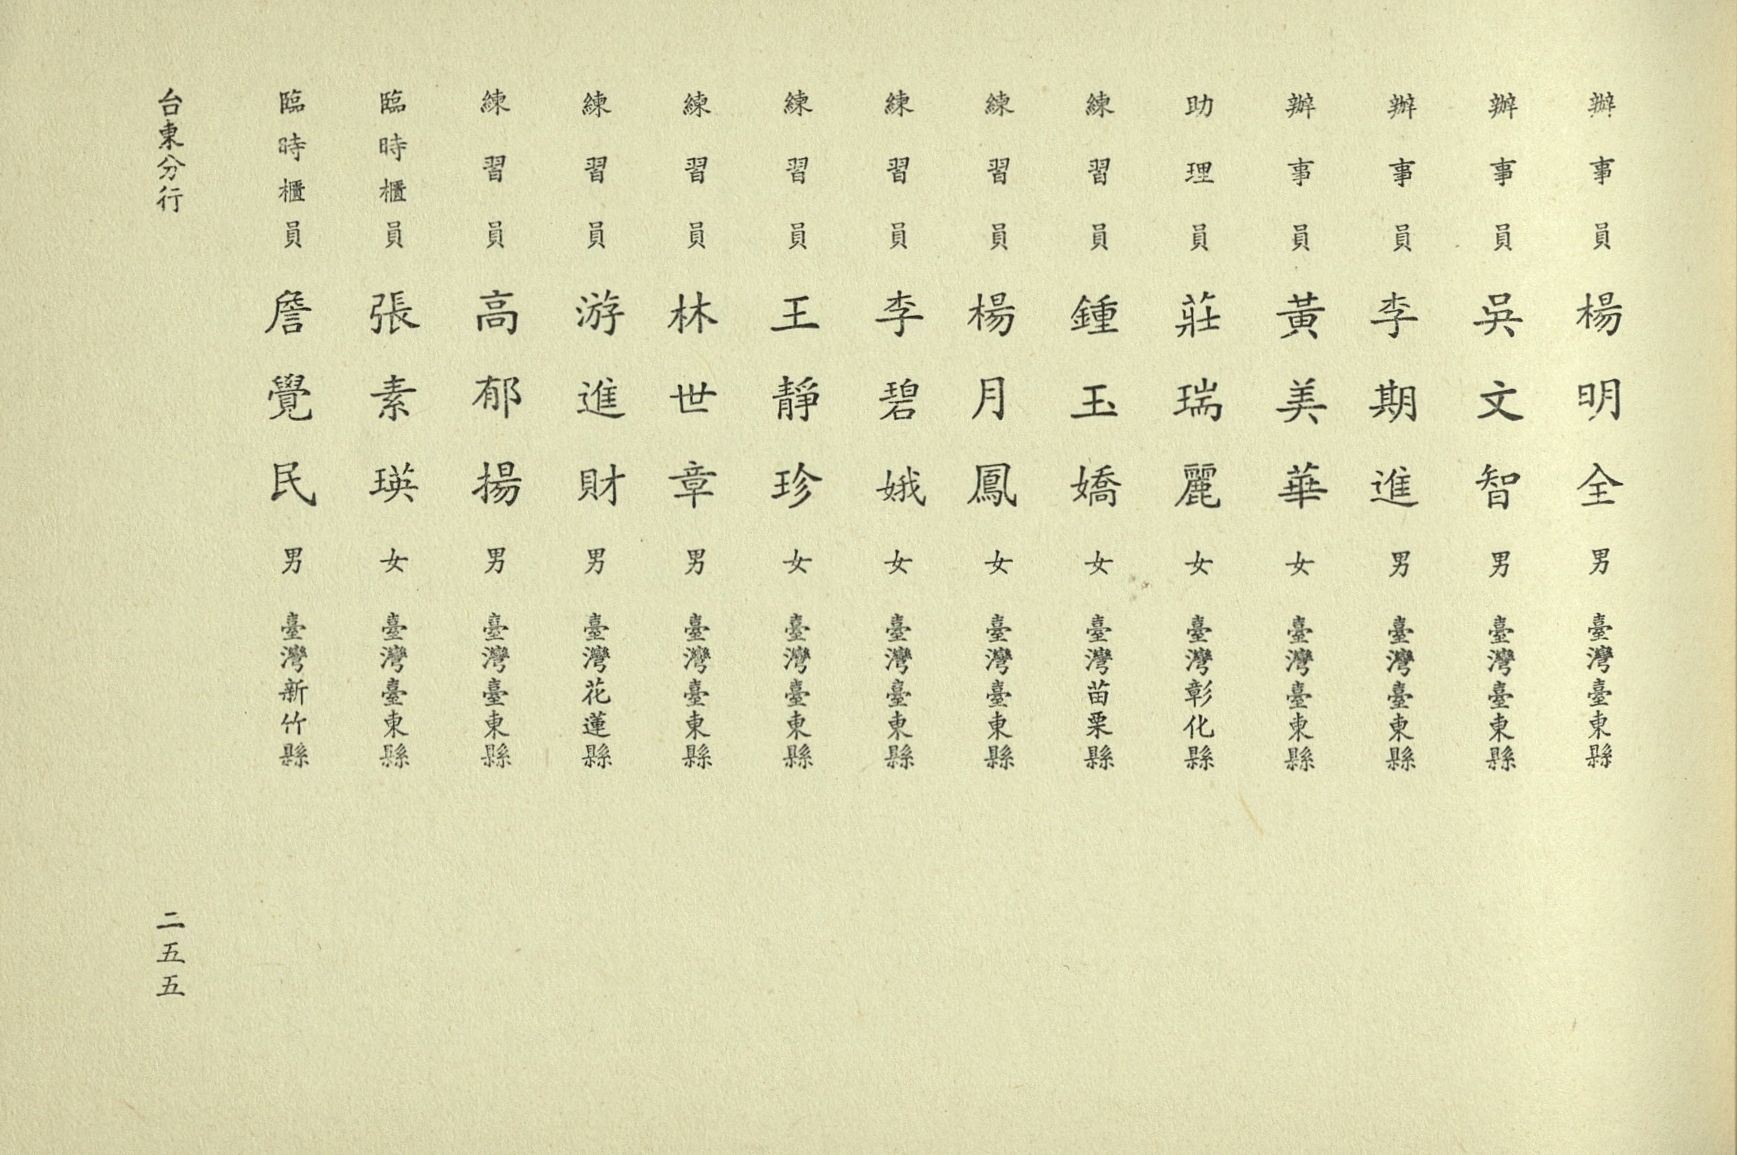 辦事員 楊明全 男 臺灣臺東縣
辦事員 吳文智 男 臺灣臺東縣
辦事員 李期進 男 臺灣臺東縣
辦事員 黃美華 女 臺灣臺東縣
助理員 莊瑞麗 女 臺灣彰化縣
練習員 鍾玉嬌 女 臺灣苗栗縣
練習員 楊月鳳 女 臺灣臺東縣
練習員 李碧娥 女 臺灣臺東縣
練習員 王靜珍 女 臺灣臺東縣
練習員 林世章 男 臺灣臺東縣
練習員 游進財 男 臺灣花蓮縣
練習員 高郁揚 男 臺灣臺東縣
臨時櫃員 張素瑛 女 臺灣臺東縣
臨時櫃員 詹覺民 男 臺灣新竹縣
台東分行 二五五